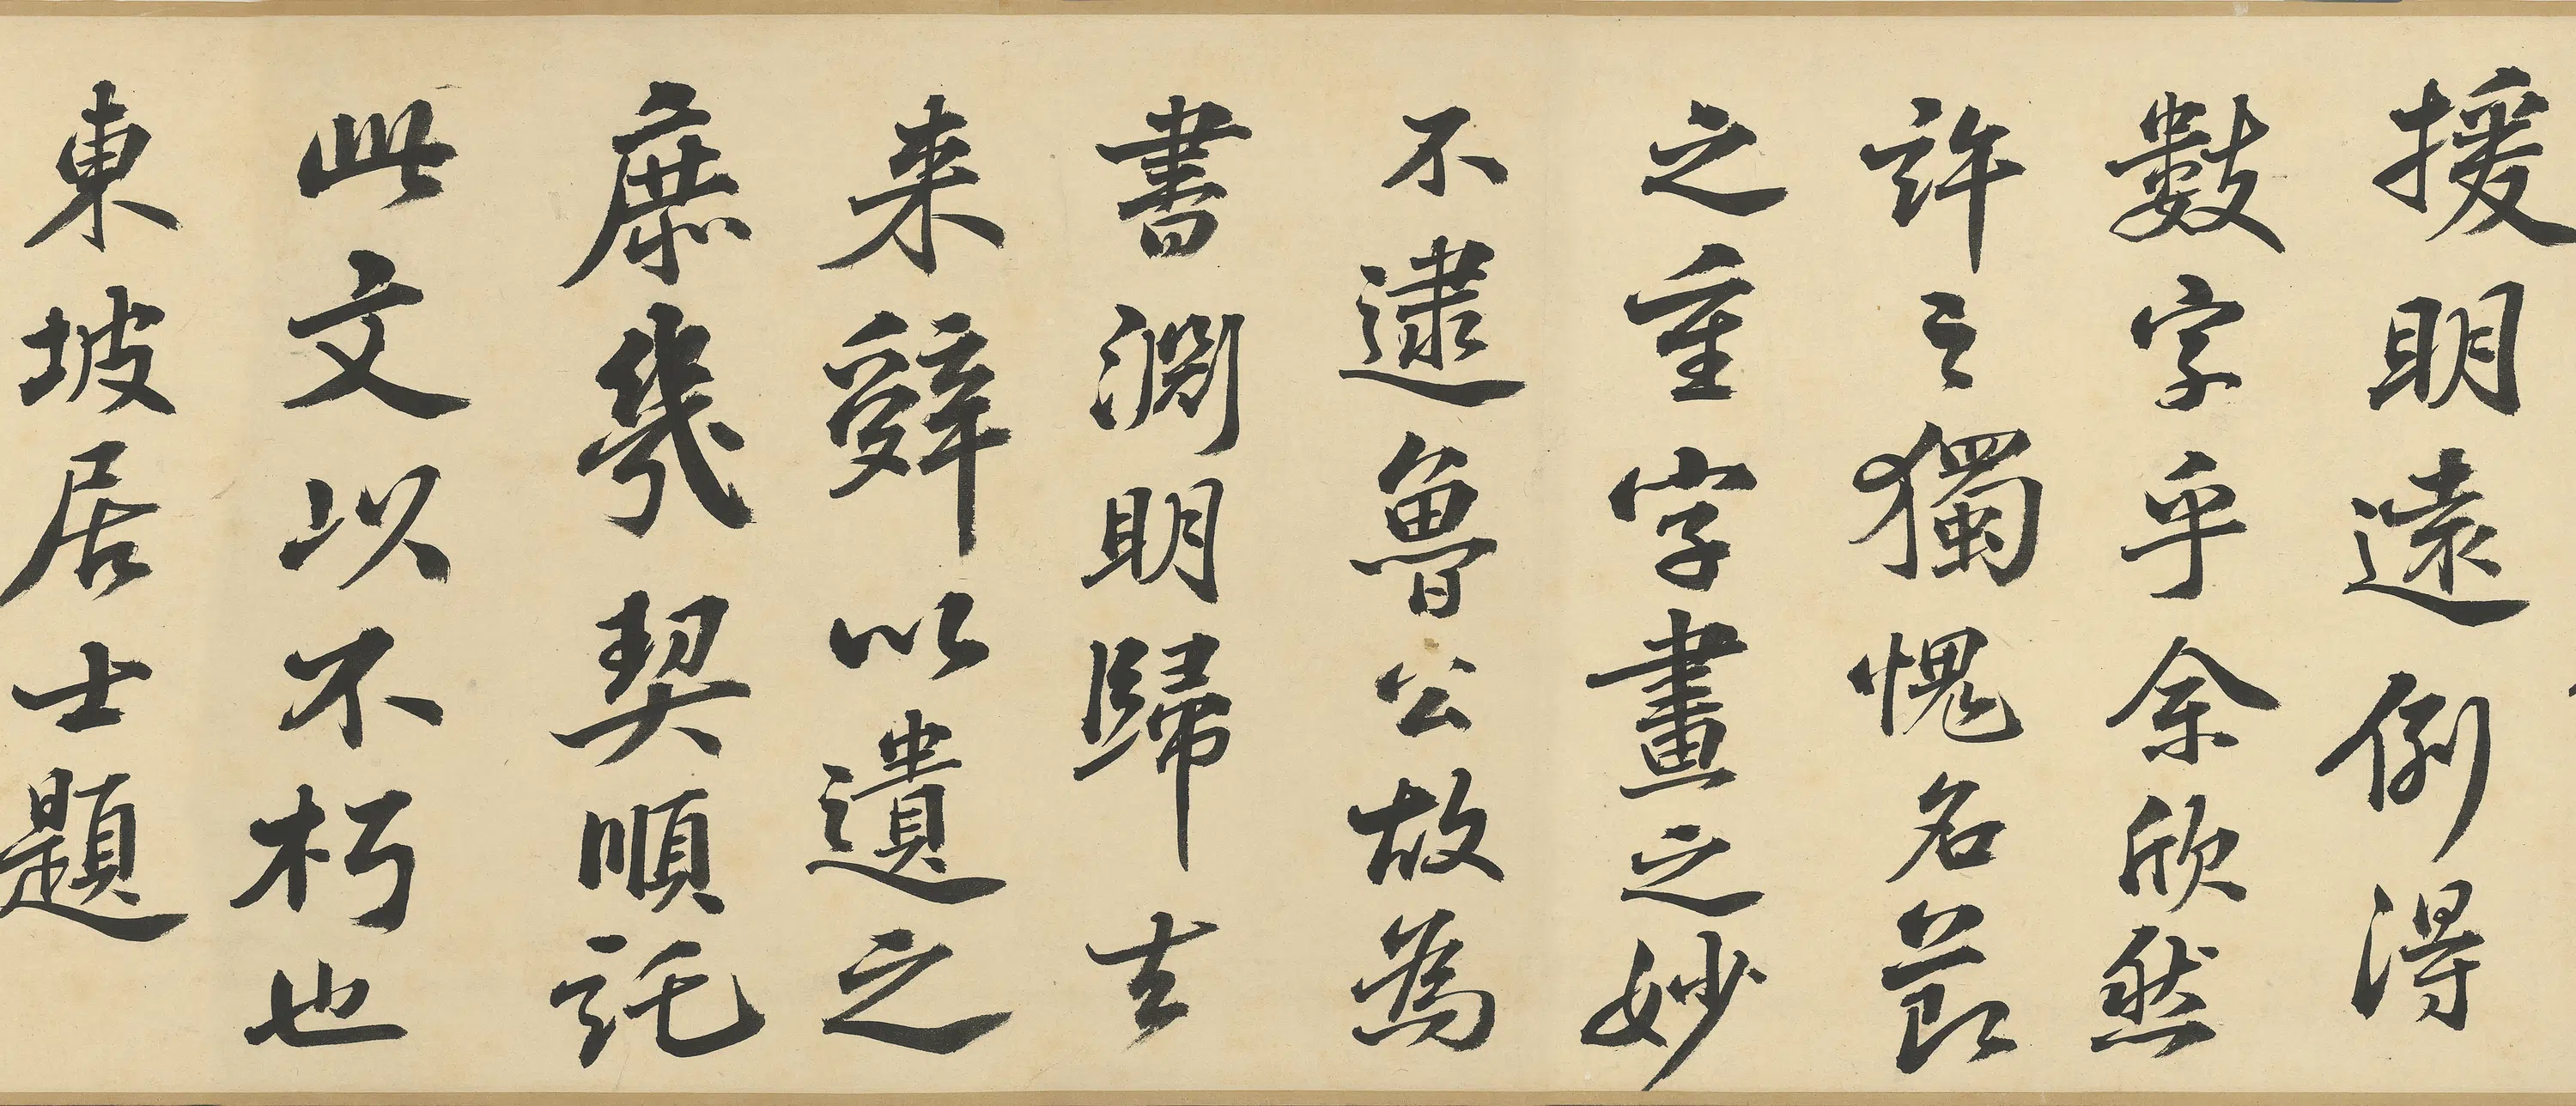 援明遠例得
數字乎余欣然
許之獨愧名節
之重字畫之妙
不逮魯公故為
書淵明歸去
来辭以遺之
庶幾契順託
此文以不朽也
東坡居士題